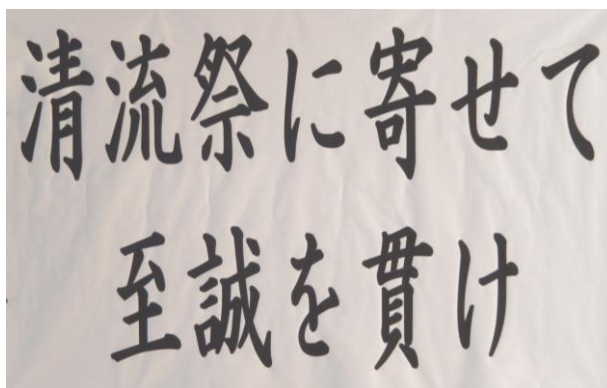 清流祭に寄せて
至誠を貫け